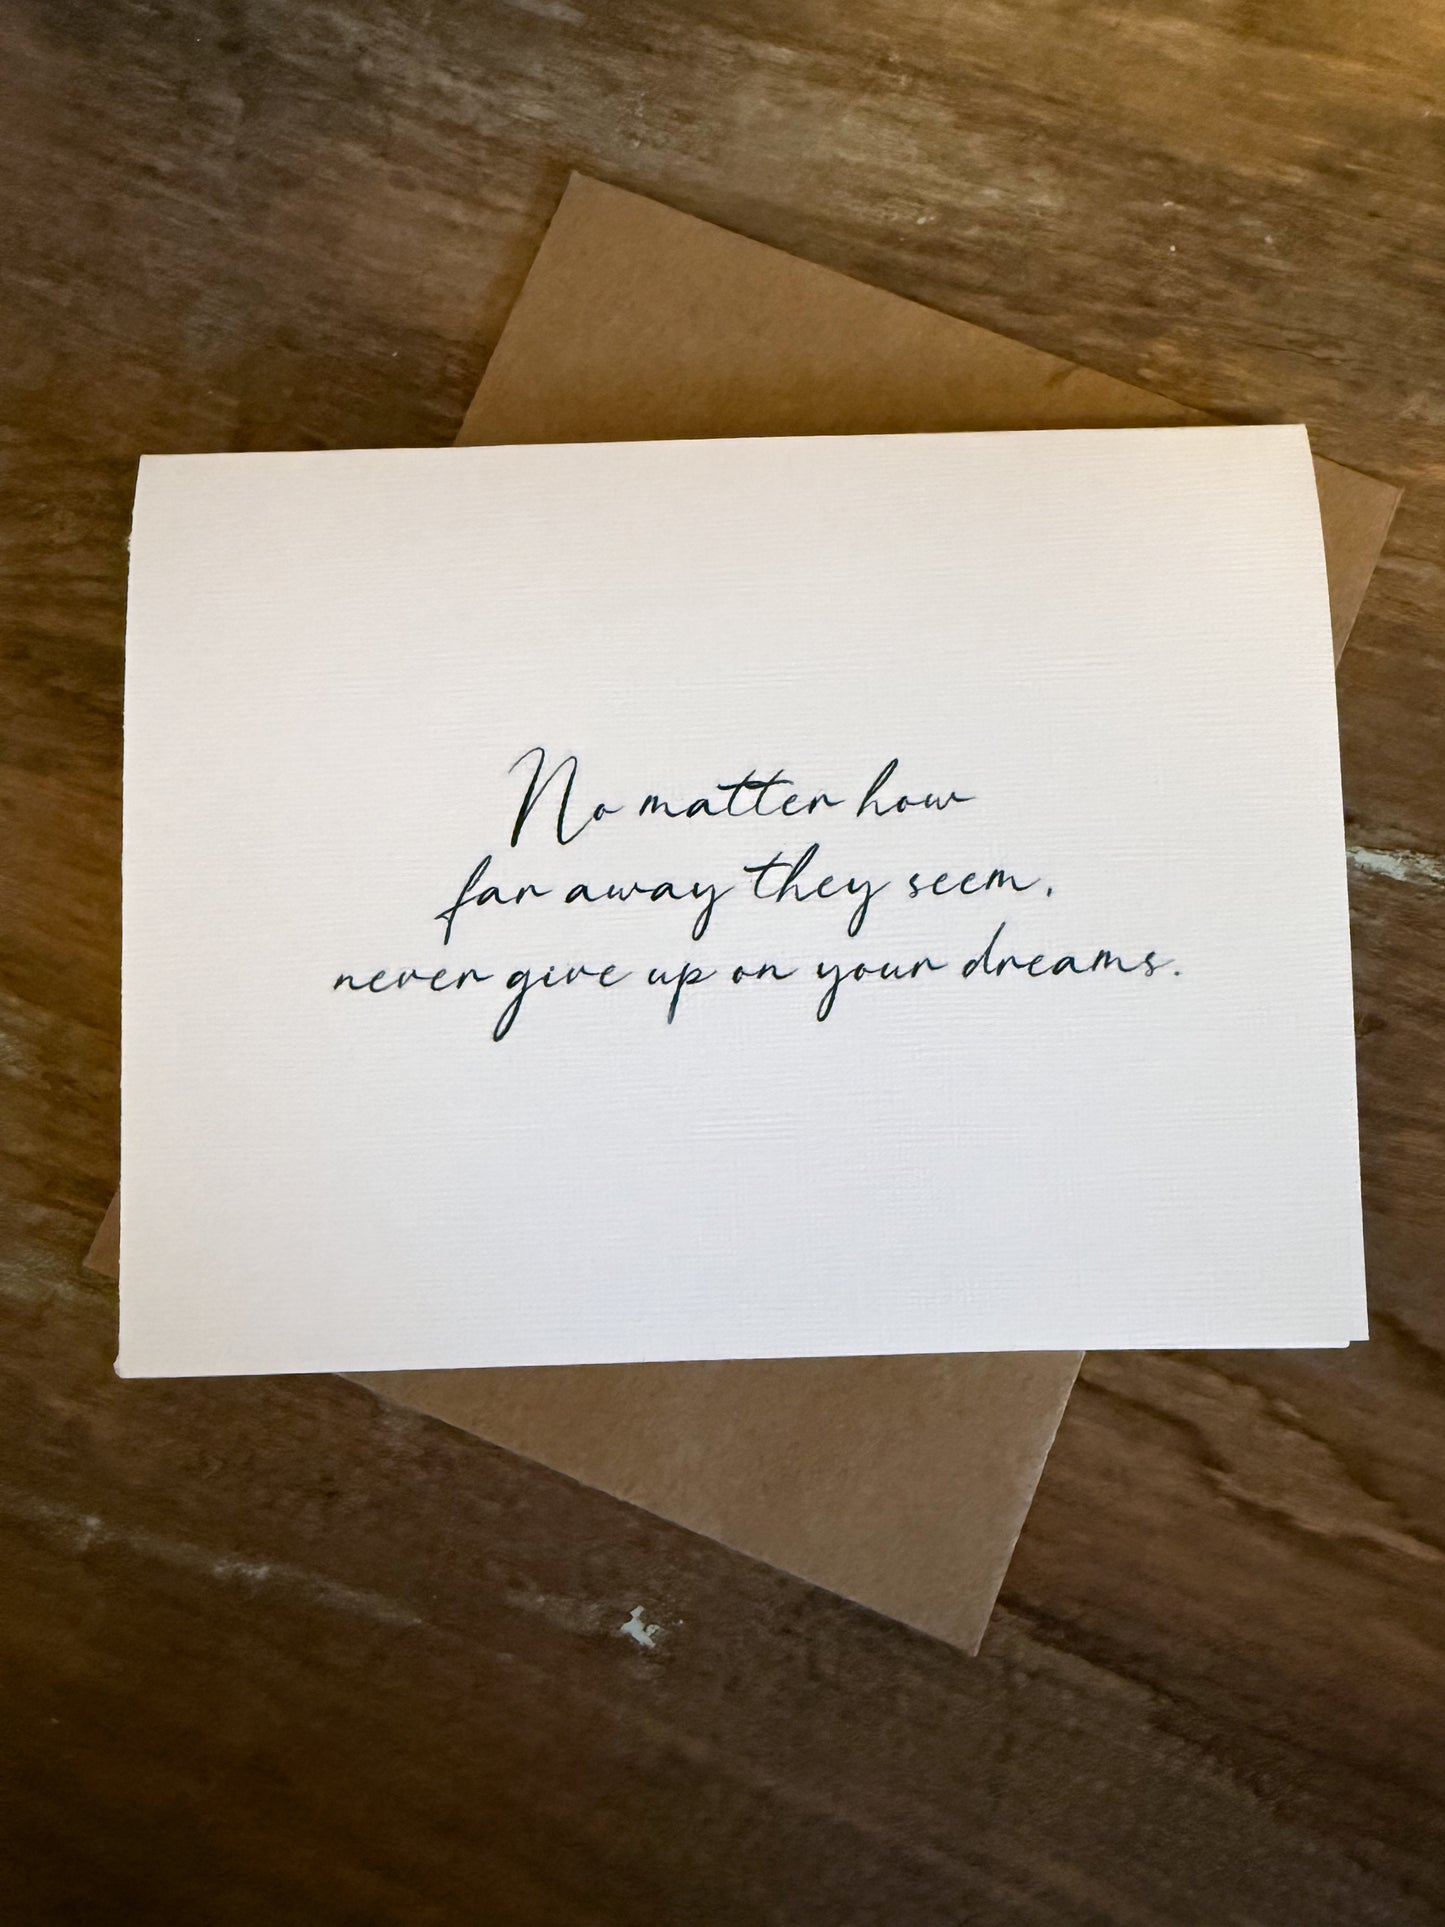 No matter how
far away they seem,
never give up on your dreams.